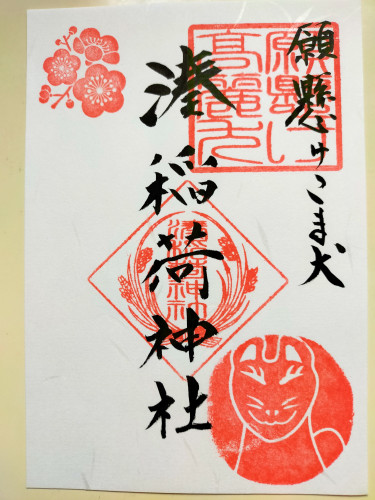 願懸けこま犬
願懸け
高麗犬
湊稲荷神社
湊稲荷神社